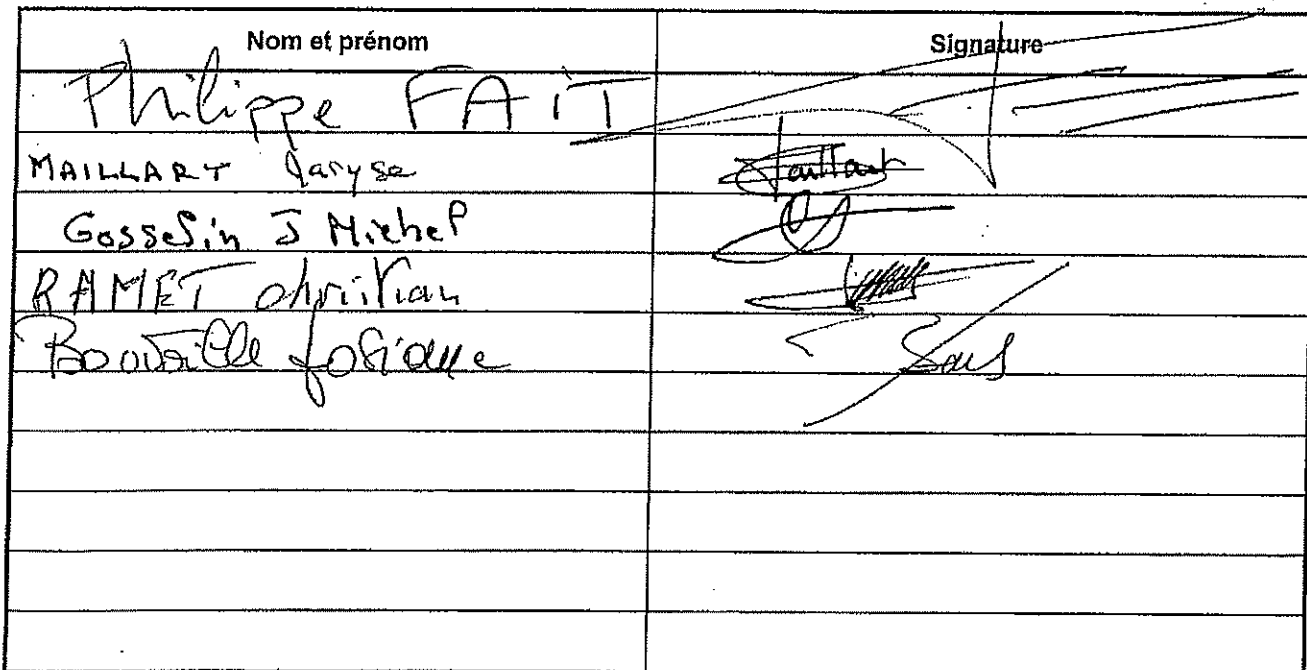 Nom et prénom Signature
Philippe FAIT
MAILLART Maryse Maillart
Gosselin J Michel
RAMET Christian
Josiane